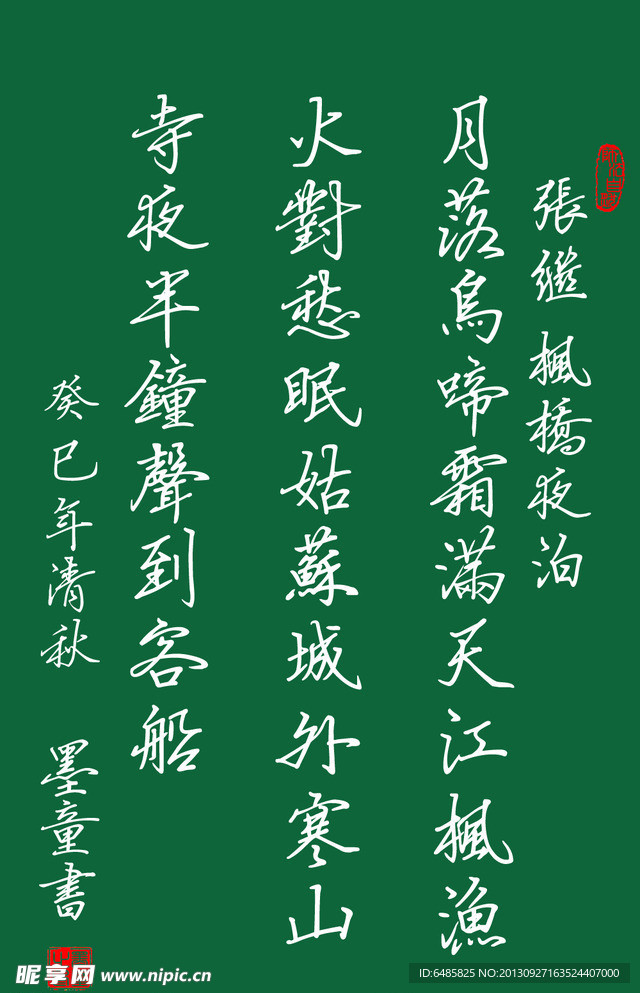 張繼楓橋夜泊
月落烏啼霜滿天江楓漁
火對愁眠姑蘇城外寒山
寺夜半鐘聲到客船
癸巳年清秋 墨童書
昵享网 www.nipic.cn
ID:6485825 NO:20130927163524407000